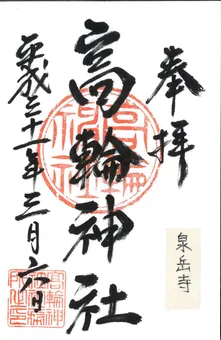 奉拝
泉岳寺
高輪神社
平成三十一年三月六日